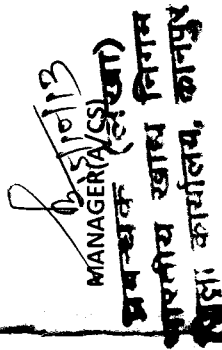 15/10/13
MANAGER(A/CS)
प्रबन्धक (लेखा)
भारतीय खाद्य निगम
कार्यालय, कानपुर